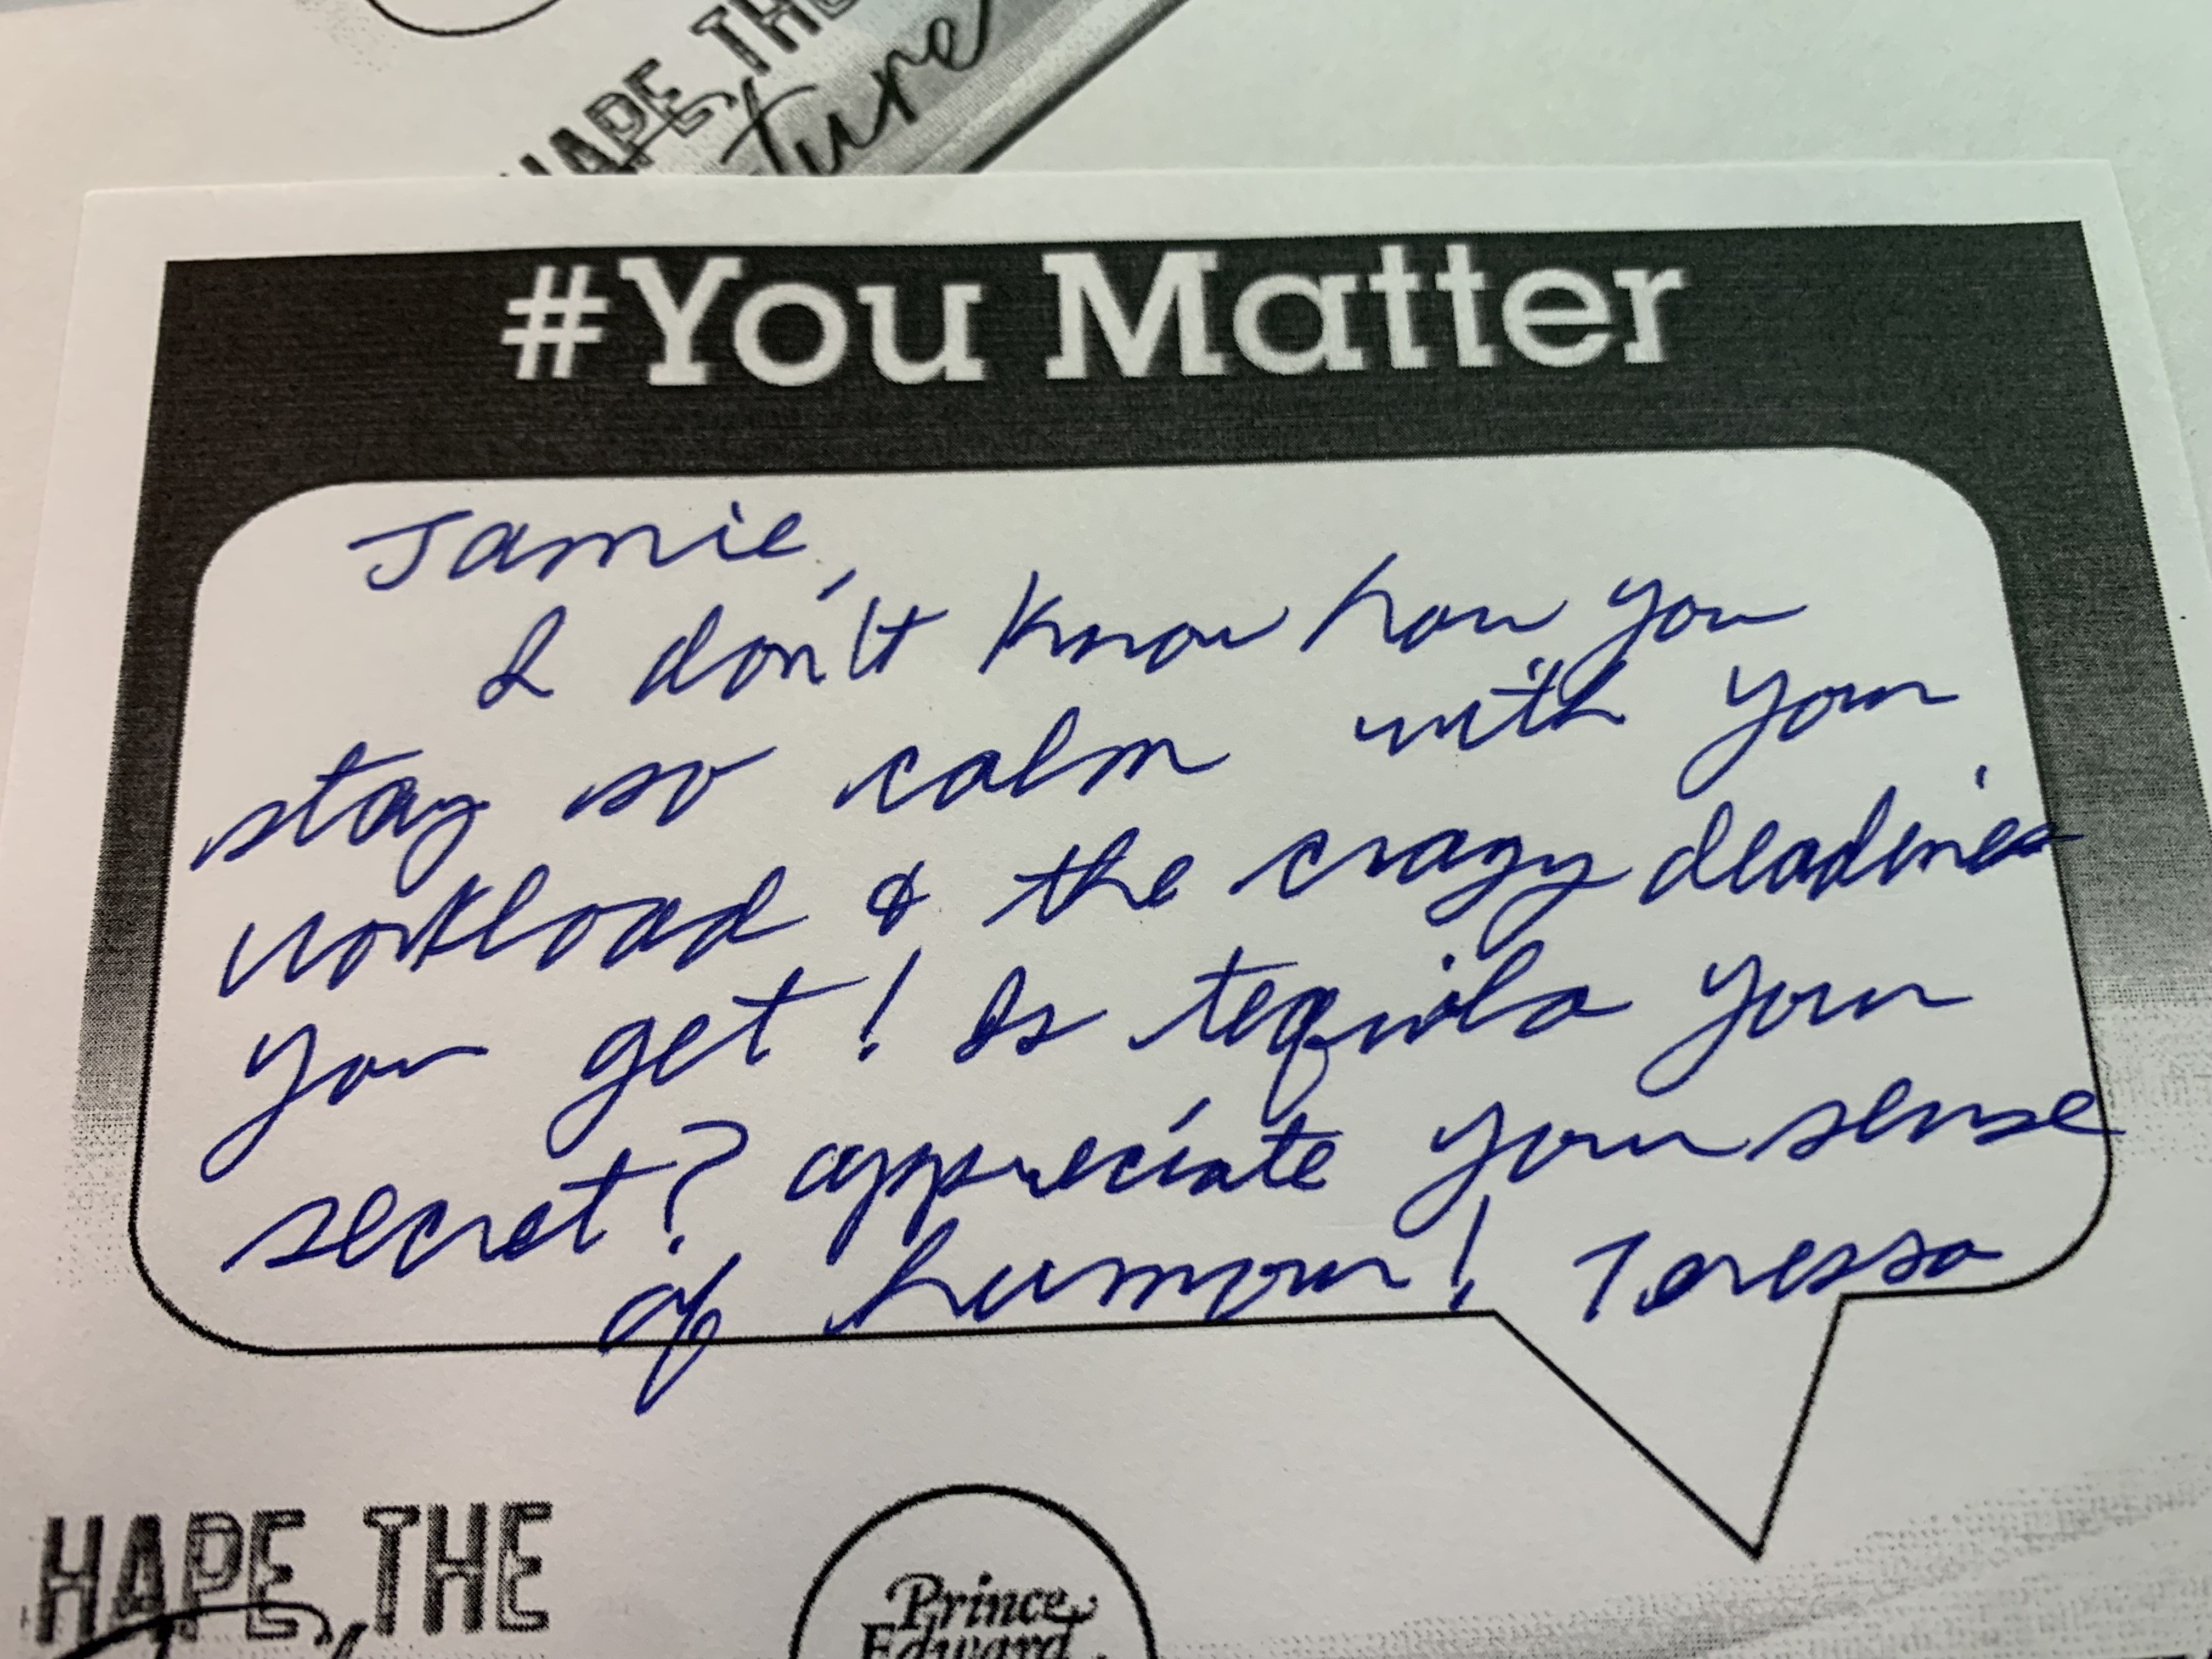 HAPE THE
ture
#You Matter
Jamie,
I don't know how you
stay so calm with your
workload & the crazy deadlines
you get! Is tequila your
secret? appreciate your sense
of humour! Teresa
HAPE THE
Prince
Edward